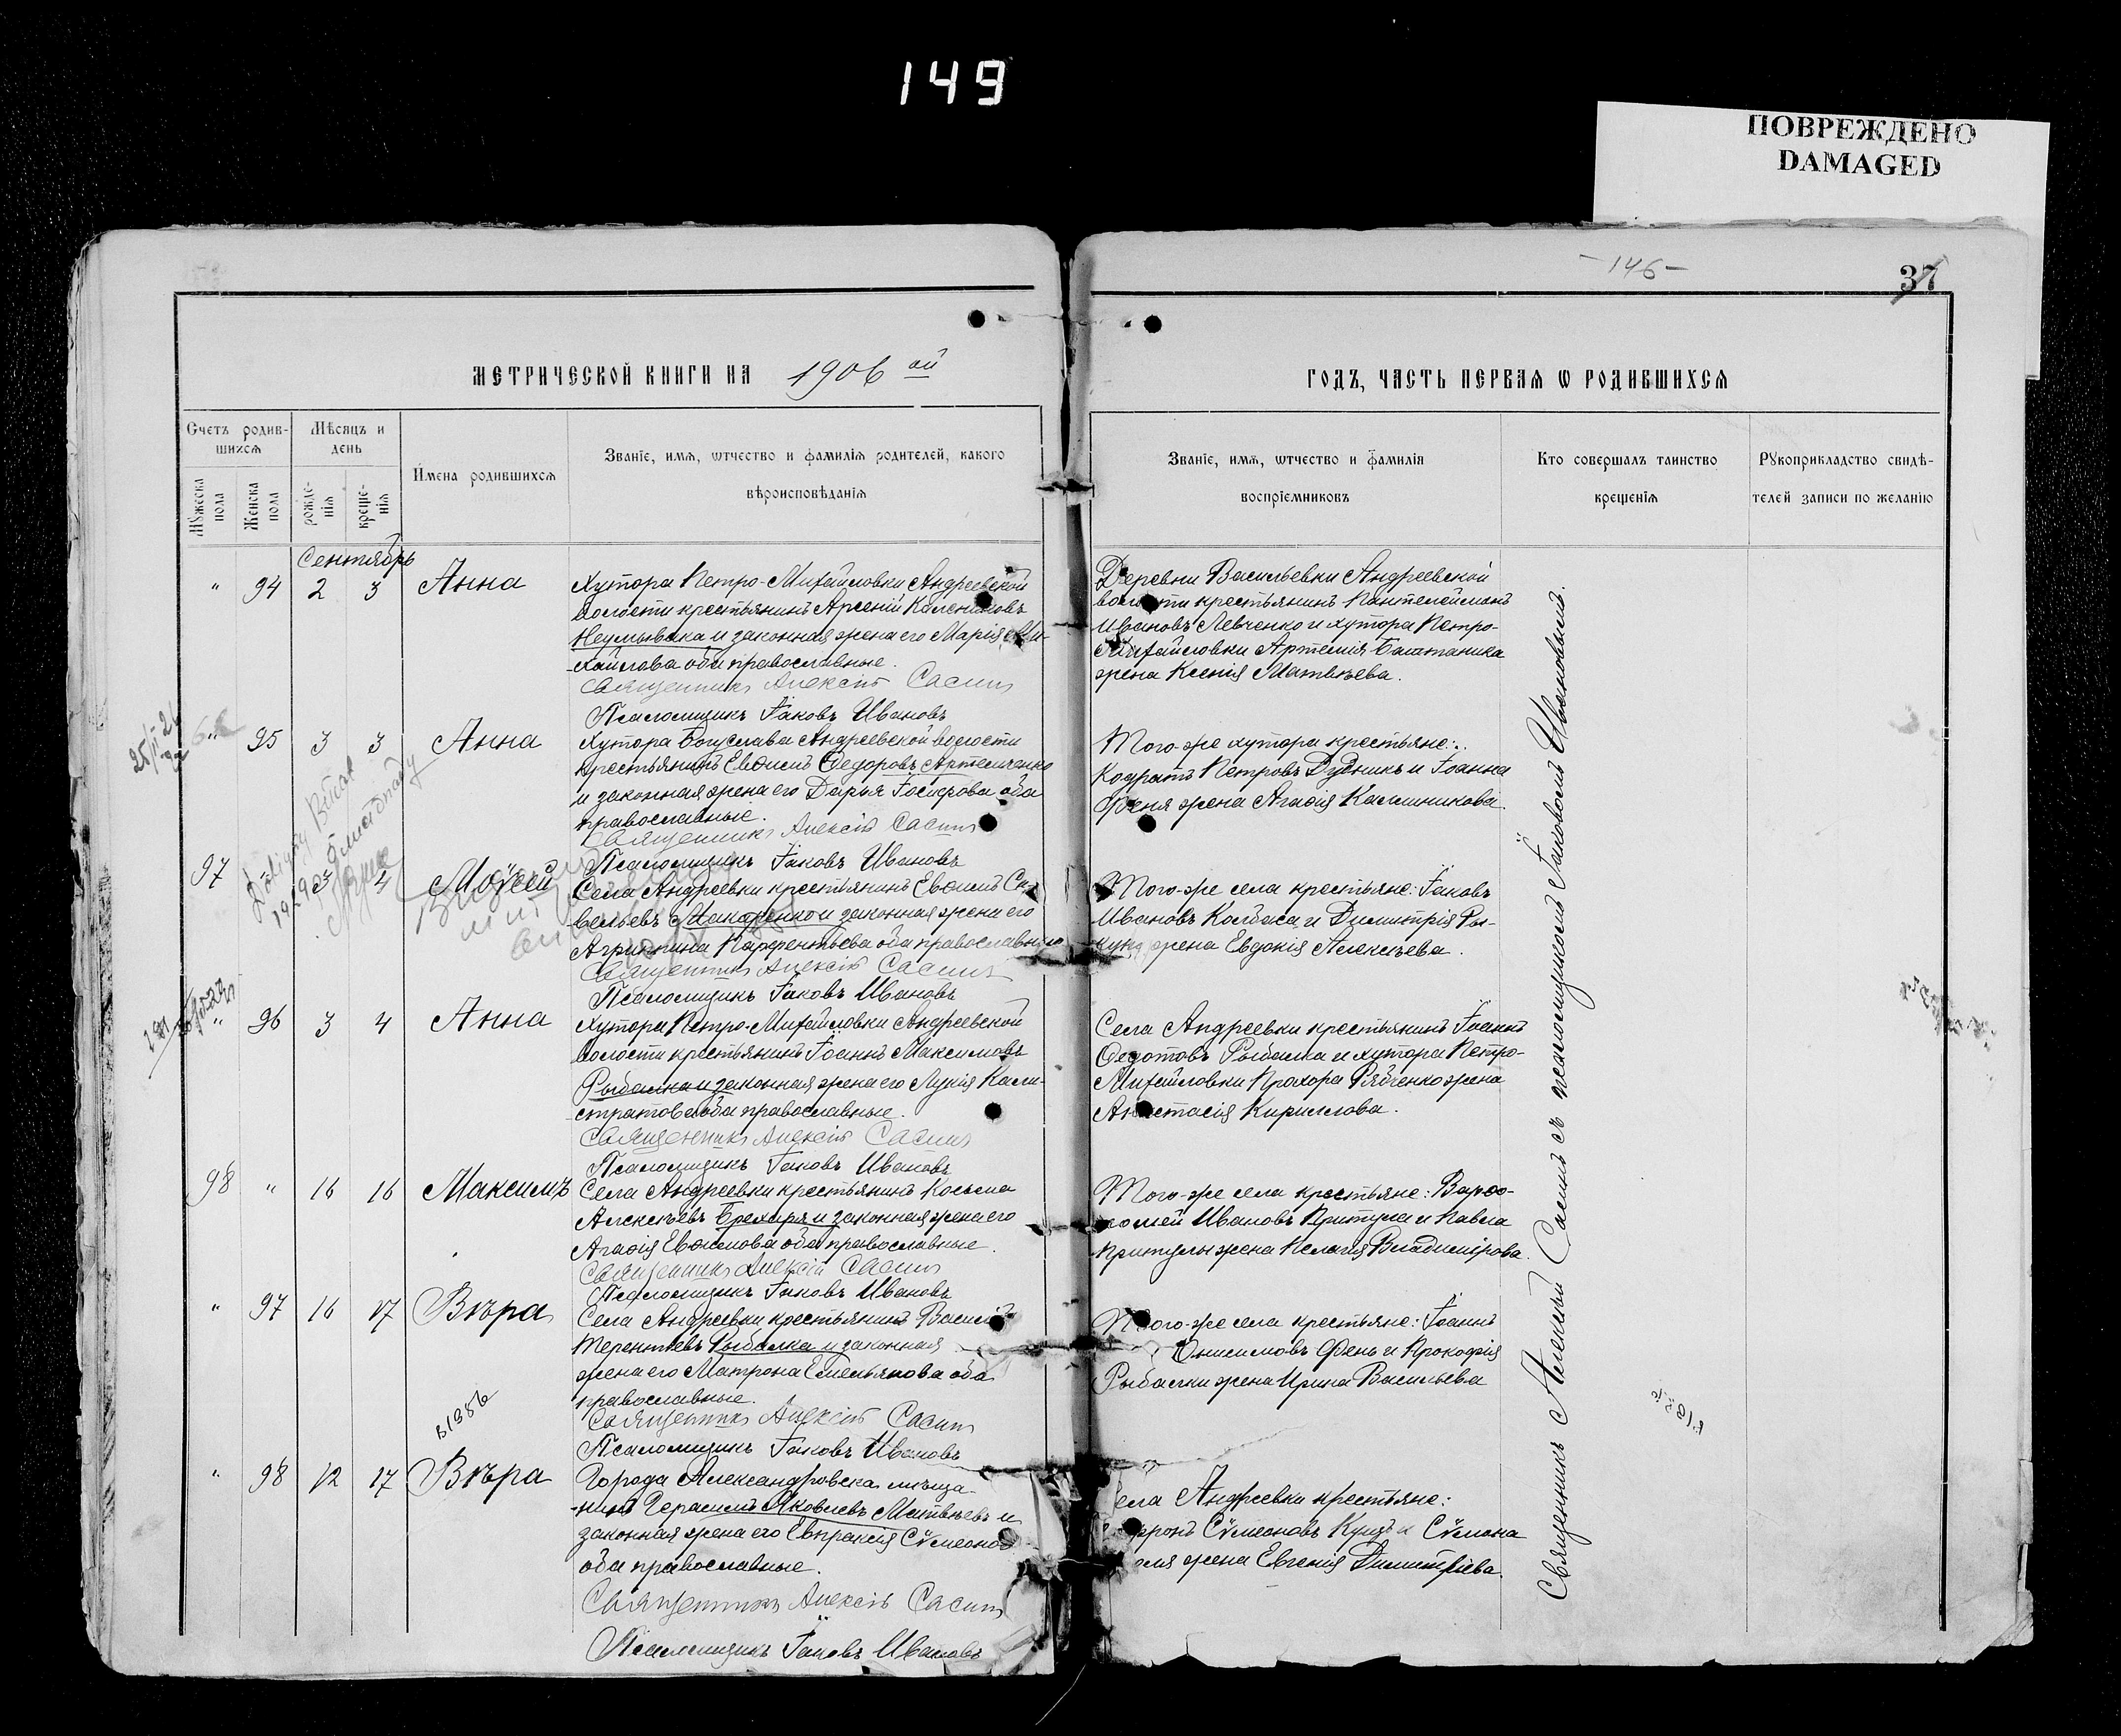 149
ПОВРЕЖДЕНО
DAMAGED
-146-
37
МЕТРИЧЕСКОЙ КНИГИ НА 1906 ой
ГОДЪ, ЧАСТЬ ПЕРВАЯ Ѡ РОДИВШИХСЯ
Счетъ родив-
шихся
Мѣсяцъ и
день
Имена родившихся
Званіе, имя, ѿтчество и фамилія родителей, какого
вѣроисповѣданія
Мꙋжеска пола
Женска пола
рожде-
нія
креще-
нія
Званіе, имя, ѿтчество и фамилія
воспріемниковъ
Кто совершалъ таинство
крещенія
Рꙋкоприкладство свидѣ-
телей записи по желанію
Сентябрь
" 94 2 3 Анна
Хутора Петро-Михайловки Андреевской
волости крестьянинъ Арсеній Калениковъ
Неумывака и законная жена его Марія Ми-
-хайлова оба православные.
Священникъ Алексій Сасинъ
Псаломщикъ Іаковъ Ивановъ
Деревни Васильевки Андреевской
волости крестьянинъ Пантелеймонъ
Ивановъ Левченко и хутора Петро-
Михайловки Артемія Баштаника
жена Ксенія Матвѣева.
" 95 3 3 Анна
Хутора Богуслава Андреевской волости
крестьянинъ Евѳимъ Ѳедоровъ Артемченко
и законная жена его Дарья Іосифова оба
православные.
Священникъ Алексій Сасинъ
Псаломщикъ Іаковъ Ивановъ
Того-же хутора крестьяне:
Кодратъ Петровъ Дудникъ и Іоанна
Феня жена Агаѳія Калинникова.
97 3 4 Моѵсей
Села Андреевки крестьянинъ Евѳимъ Са-
вельевъ Макаренко и законная жена его
Агриппина Парфентьева оба православные
Священникъ Алексій Сасинъ
Псаломщикъ Іаковъ Ивановъ
Того-же села крестьяне: Іаковъ
Ивановъ Колбаса и Димитрія
жена Евдокія Алексѣева.
" 96 3 4 Анна
Хутора Петро-Михайловки Андреевской
волости крестьянинъ Іоаннъ Максимовъ
Рыбалка и законная жена его Лукія Кали-
стратова оба православные.
Священникъ Алексій Сасинъ
Псаломщикъ Іаковъ Ивановъ
Села Андреевки крестьянинъ Іоаннъ
Ѳедотовъ Рыбалка и хутора Петро-
Михайловки Прохора Рябченко жена
Анастасія Кириллова.
98 " 16 16 Максимъ
Села Андреевки крестьянинъ Косьма
Алексѣевъ Брехаря и законная жена его
Агаѳія Евѳимова оба православные.
Священникъ Алексій Сасинъ
Псаломщикъ Іаковъ Ивановъ
Того-же села крестьяне: Варѳо-
ломей Ивановъ Притула и Павла
Притулы жена Пелагія Владимірова.
" 97 16 17 Вѣра
Села Андреевки крестьянинъ Василій
Терентіевъ Рыбалка и законная
жена его Матрона Емельянова оба
православные.
Священникъ Алексій Сасинъ
Псаломщикъ Іаковъ Ивановъ
Того-же села крестьяне: Іоаннъ
Онисимовъ Фень и Прокофія
Рыбалки жена Ирина Васильева
" 98 12 17 Вѣра
Города Александровска мѣща-
-нинъ Герасимъ Яковлевъ Матвѣевъ и
законная жена его Евпраксія Сѵмеонов
оба православные.
Священникъ Алексій Сасинъ
Псаломщикъ Іаковъ Ивановъ
ела Андреевки крестьяне:
Сѵмеоновъ Куцъ и Сѵмона
жена Евгенія Димитріева.
Священникъ Алексѣй Сасинъ съ псаломщикомъ Іаковомъ Ивановымъ.